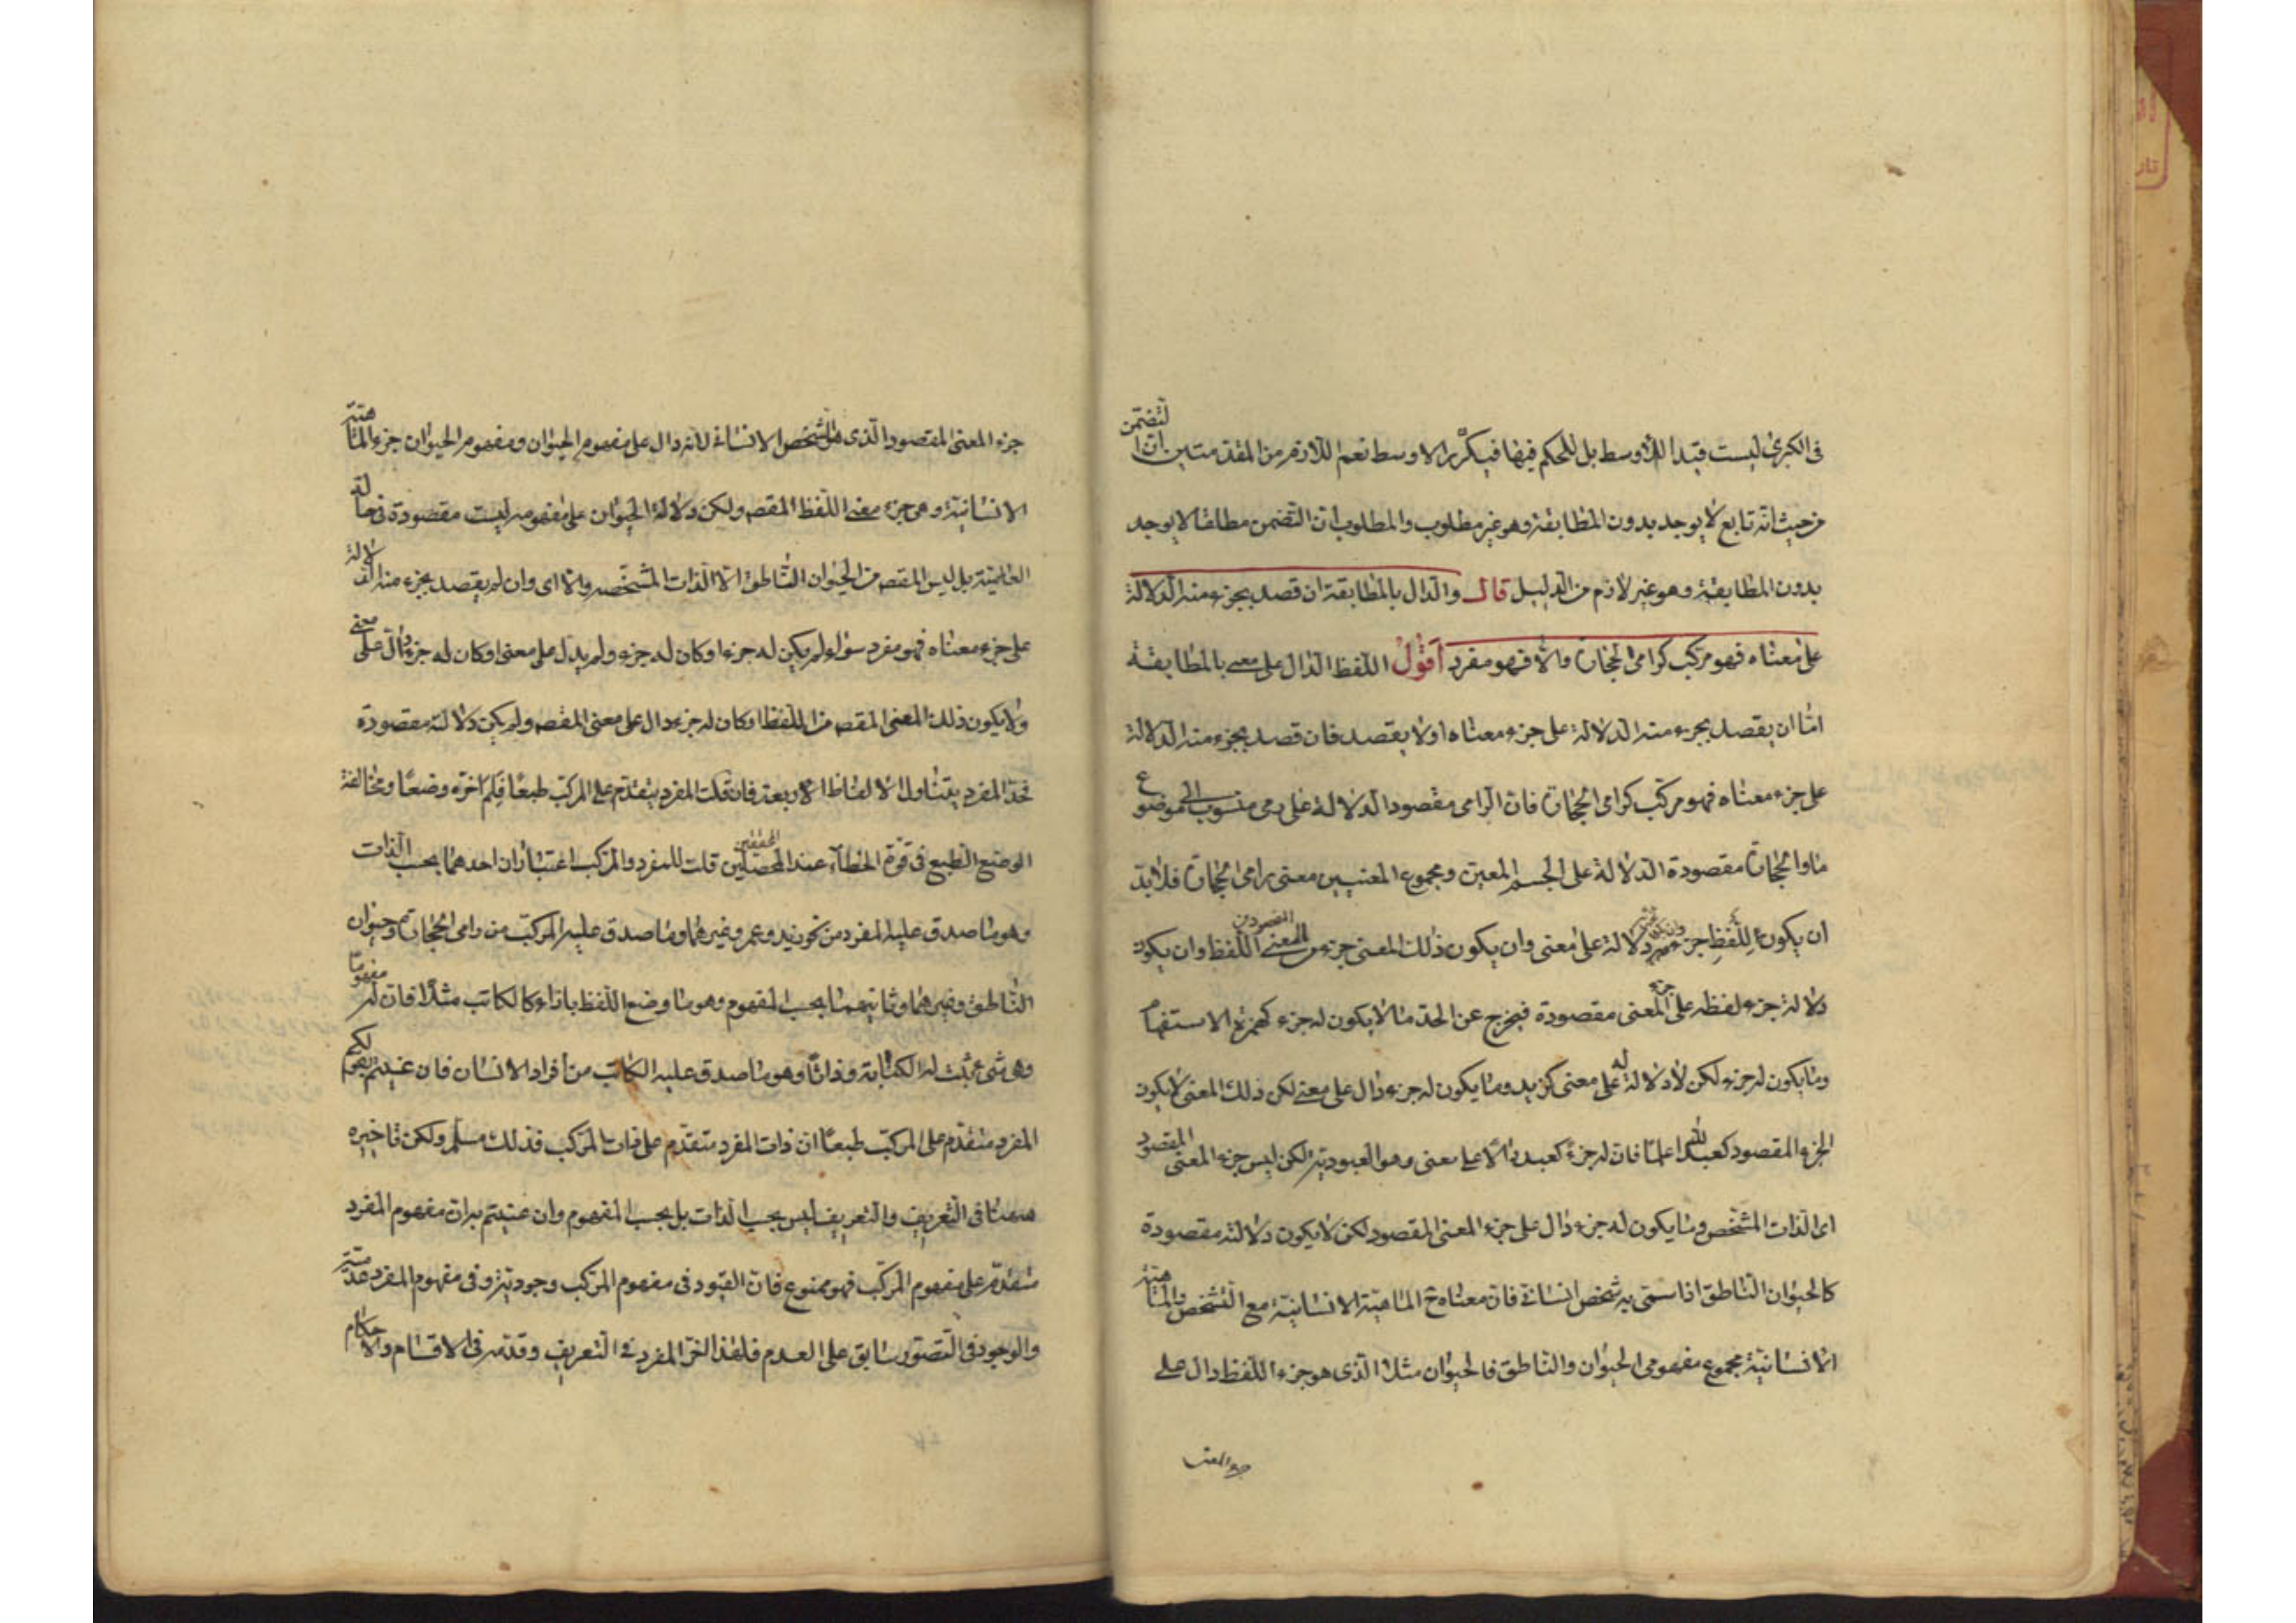 فى الكبرى ليست قيدا للأوسط بل للحكم فيها فيكرّر الاوسط نعم اللازم من المقدمتين ان التضمن
من حيث انه تابع لا يوجد بدون المطابقة وهو غير مطلوب والمطلوب ان التضمن مطلقا لا يوجد
بدون المطابقة وهو غير لازم من الدليل قال والدال بالمطابقة ان قصد بجزء منه الدلالة
على معناه فهو مركب كرامى الحجارة والا فهو مفرد اقول اللفظ الدال على معنى بالمطابقة
اما ان يقصد بجزء منه الدلالة على جزء معناه او لا يقصد فان قصد بجزء منه الدلالة
على جزء معناه فهو مركب كرامى الحجارة فان الرامى مقصود الدلالة على رمى منسوب الى موضوع
ما والحجارة مقصودة الدلالة على الجسم المعين ومجموع المعنيين معنى رامى الحجارة فلا بد
ان يكون للفظ جزء دلالة على معنى وان يكون ذلك المعنى جزء من المعنى المقصود من اللفظ وان يكون
دلالة جزء لفظه على جزء المعنى مقصودة فيخرج عن الحد ما لا يكون له جزء كهمزة الاستفهام
وما يكون له جزء لكن لا دلالة له على معنى كزيد وما يكون له جزء دال على معنى لكن ذلك المعنى لا يكون
الجزء المقصود كعبد الله علما فان له جزء كعبد دالا على معنى وهو العبودية لكن ليس جزء المعنى المقصود
اى الذات المشخص وما يكون له جزء دال على جزء المعنى المقصود لكن لا يكون دلالته مقصودة
كالحيوان الناطق اذا سمى به شخص انسانى فان معناه ح الماهية الانسانية مع التشخص والماهية
الانسانية مجموع مفهومى الحيوان والناطق فالحيوان مثلا الذى هو جزء اللفظ دال على
جزء المعنى
جزء المعنى المقصود الذى هو الشخص الانسانى لانه دال على مفهوم الحيوان ومفهوم الحيوان جزء الماهية
الانسانية وهى جزء معنى اللفظ المقصم ولكن دلالة الحيوان على مفهومه ليست مقصودة فى حالة
العلمية بل ليس المقصم من الحيوان الناطق الا الذات المشخصه والا اى وان لم يقصد بجزء منه الدلالة
على جزء معناه فهو مفرد سواء لم يكن له جزء او كان له جزء ولم يدل على معنى او كان له جزء دال على معنى
ولا يكون ذلك المعنى المقصم من اللفظ او كان له جزء دال على معنى المقصم ولم يكن دلالته مقصودة
فحد المفرد يتناول الالفاظ الاربعة فان قلت المفرد يتقدم على المركب طبعا فلم اخره وضعا ومخالفة
الوضع الطبع فى قوة الخطاء عند المحصلين قلت للمفرد والمركب اعتباران احدهما بحسب الذات
وهو ما صدق عليه المفرد من نحو زيد وعمرو وغيرهما وما صدق عليه المركب من رامى الحجارة وحيوان
الناطق وغيرهما وثانيهما بحسب المفهوم وهو ما وضع اللفظ بازاءه كالكاتب مثلا فان له مفهوما
وهو شئ يثبت له الكتابة وذاتا وهو ما صدق عليه الكاتب من افراد الانسان فان عنيتم بقولكم
المفرد متقدم على المركب طبعا ان ذات المفرد متقدم على ذات المركب فذلك مسلم ولكن تاخيره
ههنا فى التعريف والتعريف ليس بحسب الذات بل بحسب المفهوم وان عنيتم به ان مفهوم المفرد
متقدم على مفهوم المركب فهو ممنوع فان القيود فى مفهوم المركب وجودية وفى مفهوم المفرد عدمية
والوجود فى التصور سابق على العدم فلهذا اخر المفرد فى التعريف وقدمه فى الاقسام والاحكام